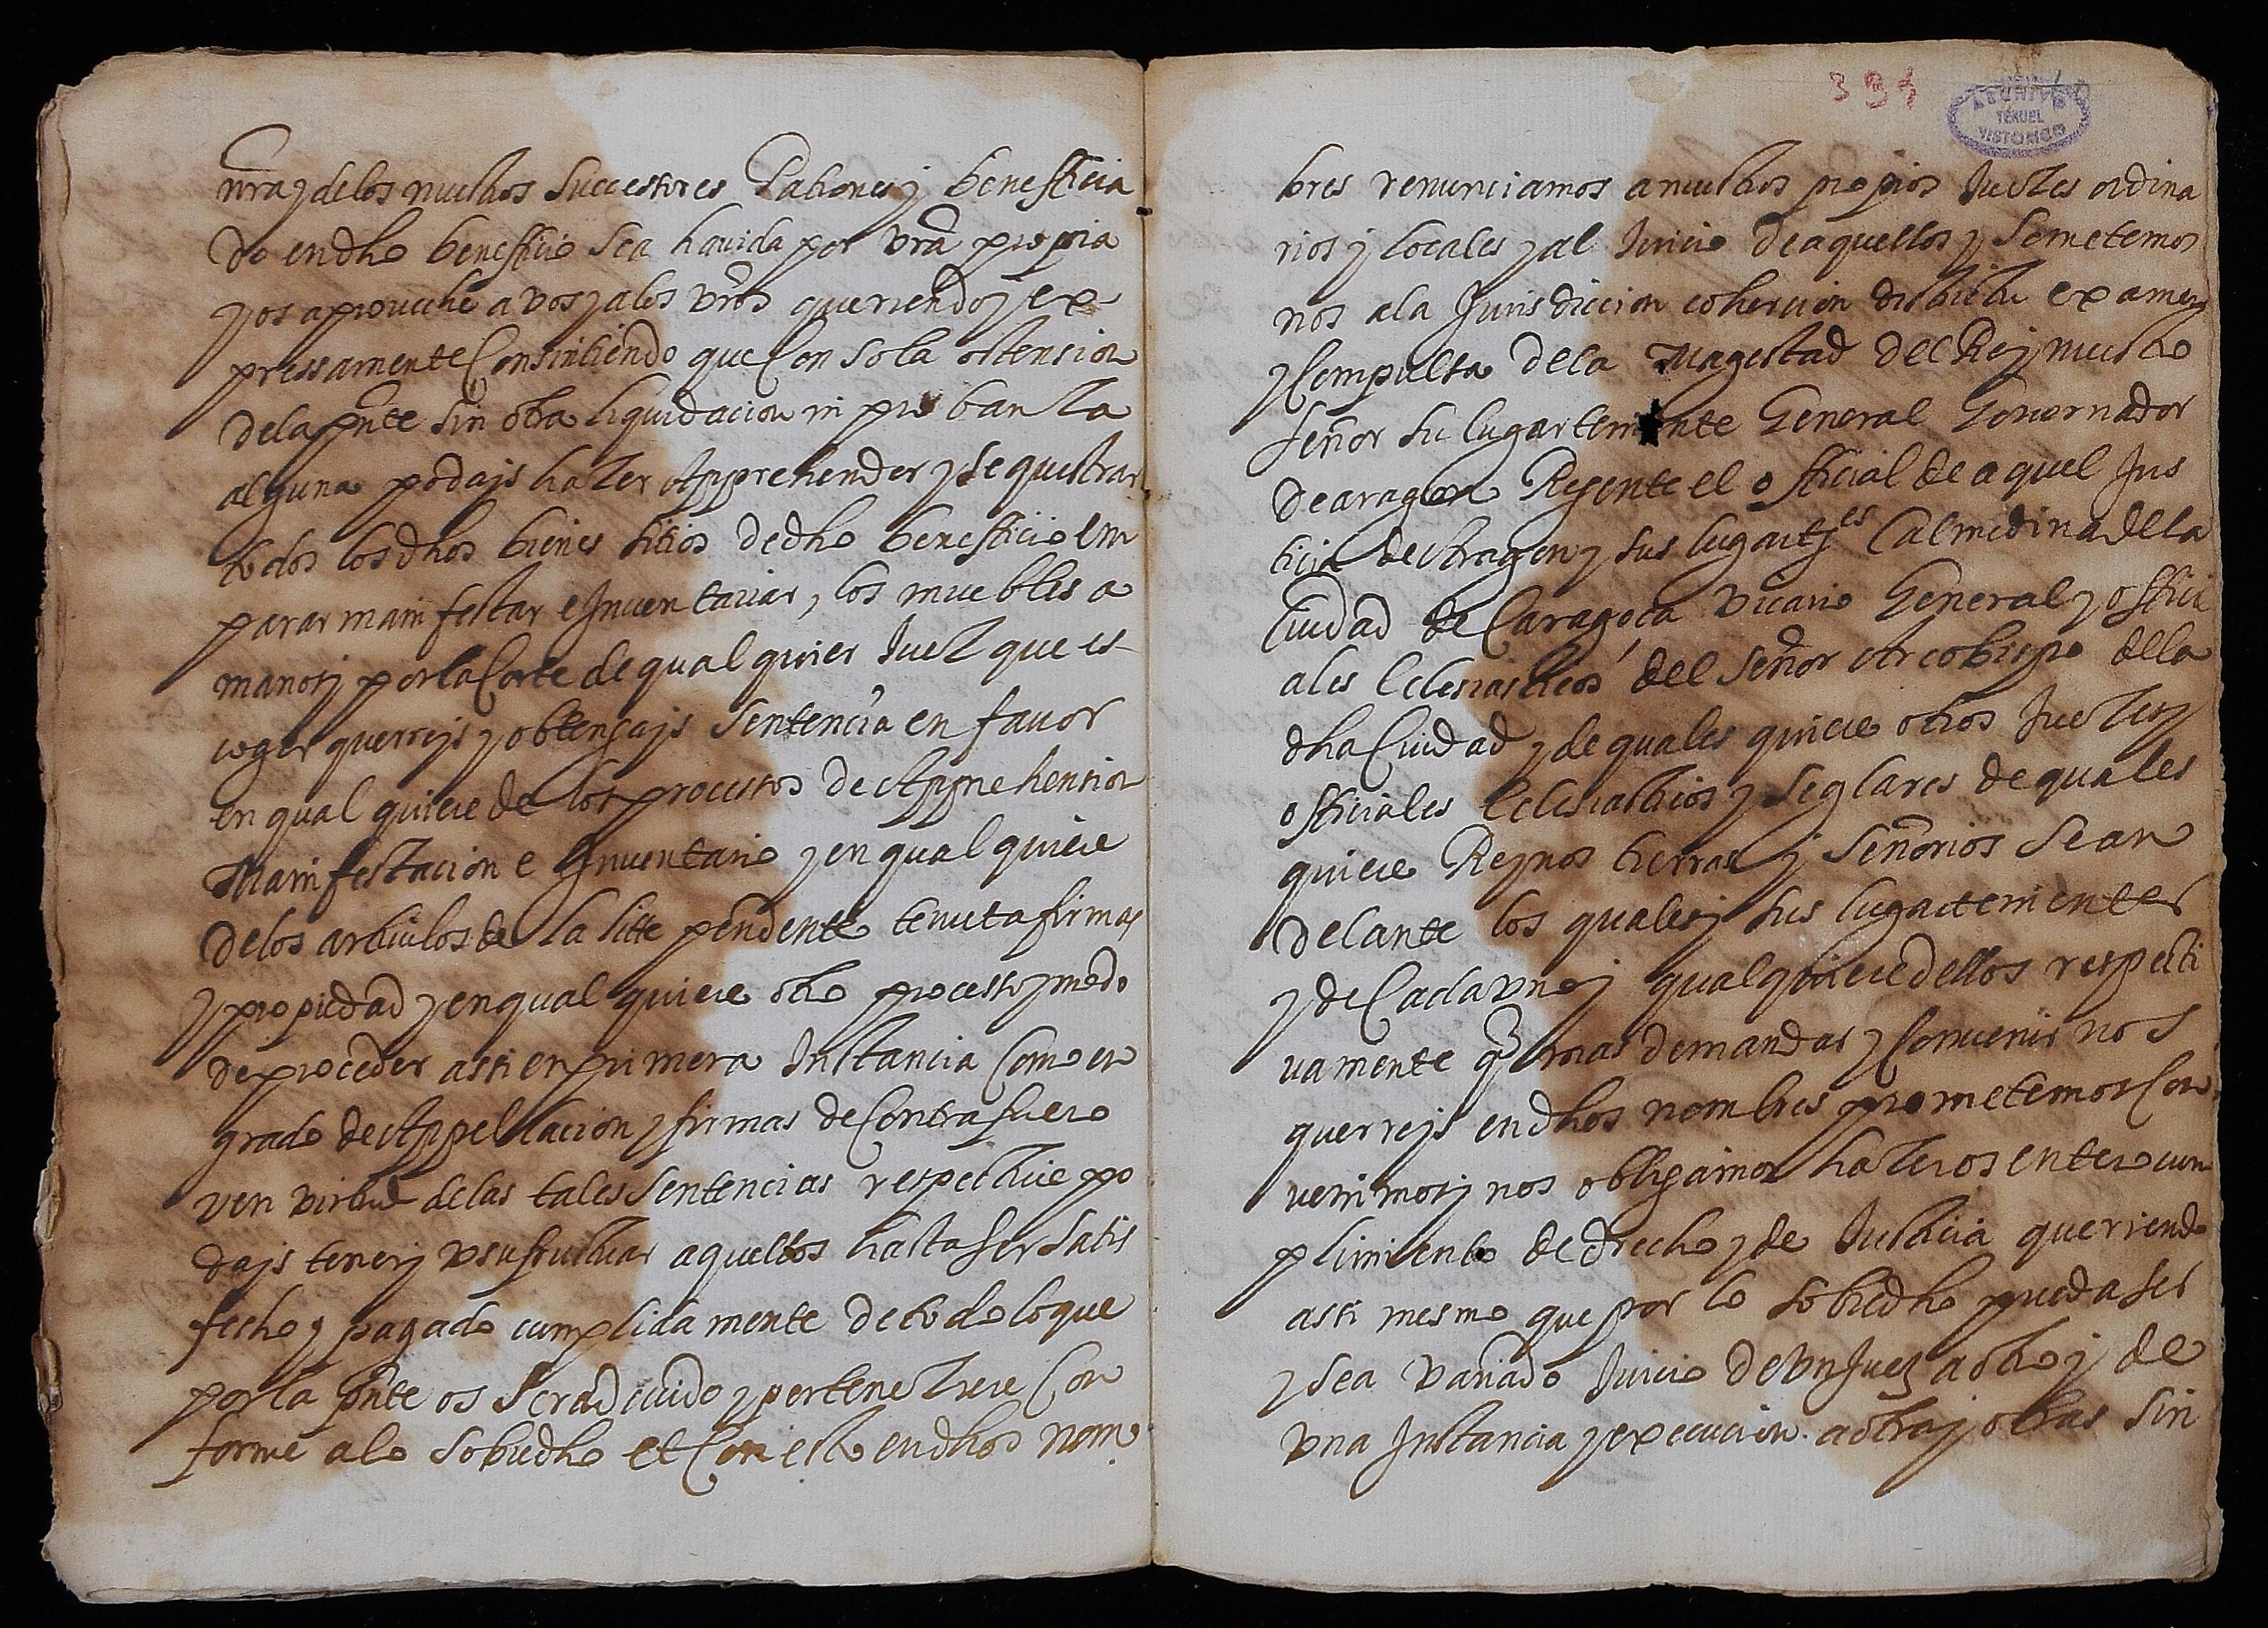 nrã y de los nuestros successores Patrones y beneficia
do en dho beneficio sea hauida por vrã propia
y os aprouche a vos y a los vr̃os queriendo y ex-
pressamente Consintiendo que Con sola ostension
de la pñte sin otra liquidacion ni probanza
alguna podays hazer Apprehender y sequestrar
todos los dhos bienes sitios de dho beneficio em
parar manifestar e Inuentariar, los muebles a
manos y por la Corte de qual quier Juez que es-
coger querreys y obtengays sentencia en fauor
en qual quiere de los processos de Apprehension
Manifestacion e Inuentario y en qual quiere
de los articulos de la litte pendente tenuta firmas
y propiedad y en qual quiere otro processo y modo
de proceder assi en primera Instancia Como en
grado de Appellacion y firmas de Contrafuero
y en virtud de las tales sentencias respectiue po
days tener y vsufructuar aquellos hasta ser satis
fecho y pagado cumplidamente de todo lo que
por la pñte os sera deuido y pertenezciere Con
forme a lo sobredho et Con esto en dhos nom
394
ARCHIVO
TERUEL
HISTORICO
bres renunciamos a nuestros propios Juezes ordina
rios y locales y al Juicio de aquellos y sometemos
nos a la Jurisdiccion cohercion districtu examen
y Compulsa de la Magestad del Rey nuestro
señor su lugarteniente General Gouernador
de aragon Regente el officio de aquel Jus
ticia de Aragon y sus lugartes Calmedina de la
Ciudad de Caragoça vicario General y offici
ales Eclesiasticos del señor Arcobispo de la
dha Ciudad y de quales quiere otros Juezes y
officiales Eclesiasticos y seglares de quales
quiere Reynos tierras y señorios sean
delante los quales y sus lugartenientes
y de Cada vno y qualquiere dellos respecti
uamente q̃ mas demandar y Conuenir nos
querreys en dhos nombres prometemos Con
uenimos y nos obligamos hazeros entero cum
plimiento de drecho y de Justicia queriendo
assi mesmo que por lo sobredho pueda ser
y sea variado Juicio de vn Juez a otro y de
vna Instancia y execucion a otra y otras sin